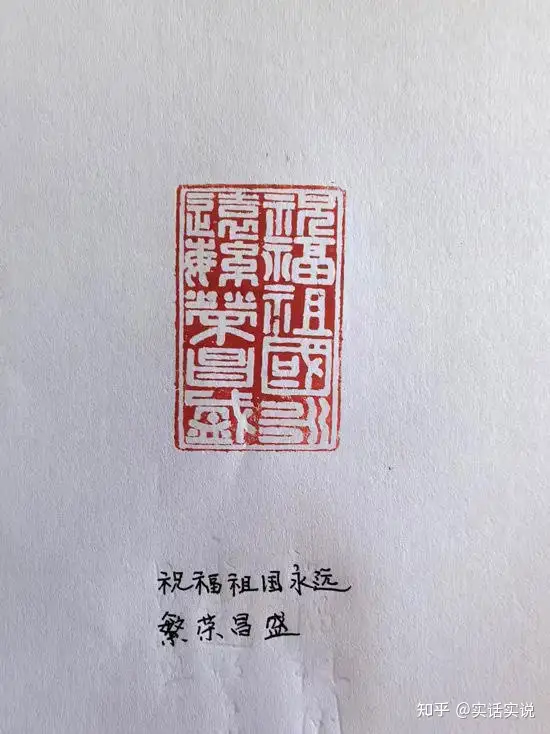 祝福祖國永
遠繁荣昌盛
祝福祖国永远
繁荣昌盛
知乎 @实话实说